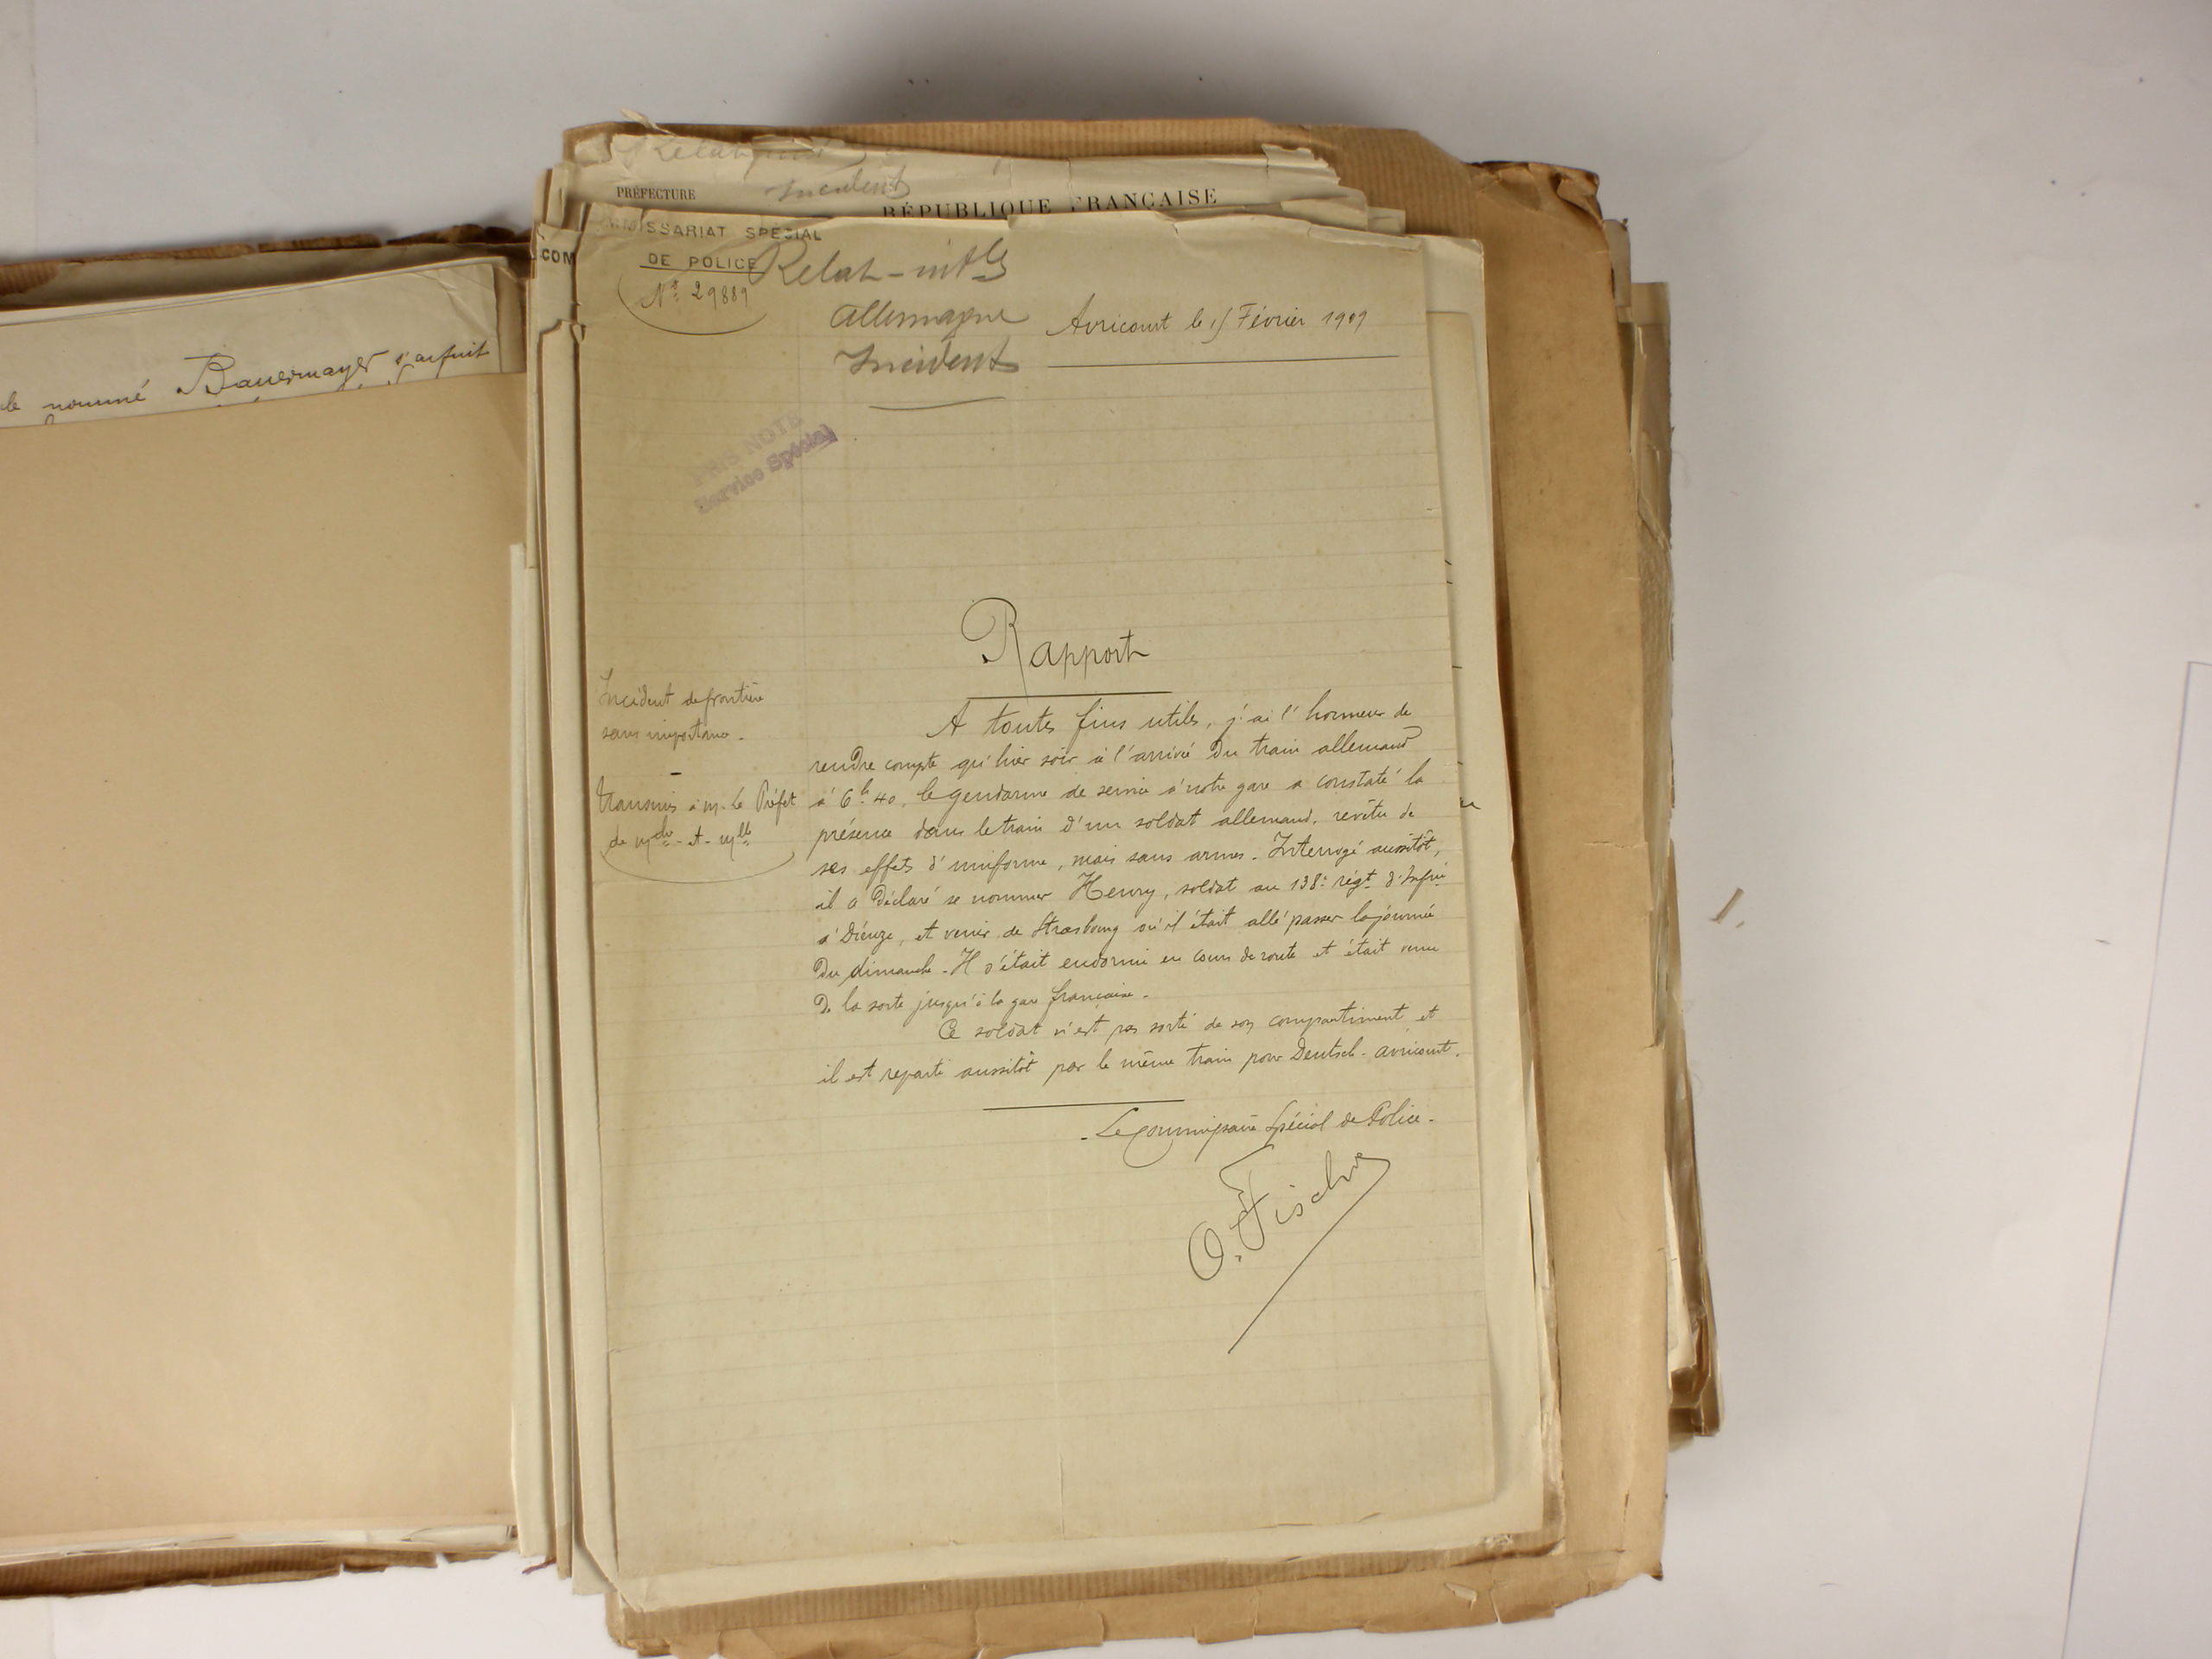 le nommé Bauermayer s'enfuit
Incident
PRÉFECTURE
RÉPUBLIQUE FRANÇAISE
COM
COMMISSARIAT SPÉCIAL
DE POLICE
Relat-intles
N° 29889
Allemagne
Avricourt le 15 Février 1909
Incident
PRIS NOTE
Service Spécial
Rapport
Incident de frontière
sans importance.
Transmis à M. le Préfet
de Mthe-et-Mlle
A toutes fins utiles, j'ai l'honneur de
rendre compte qu'hier soir à l'arrivée du train allemand
à 6h 40, le gendarme de service à notre gare a constaté la
présence dans le train d'un soldat allemand, revêtu de
ses effets d'uniforme, mais sans armes. Interrogé aussitôt,
il a déclaré se nommer Henry, soldat au 138e régt d'Infrie
à Dieuze, et venir de Strasbourg où il était allé passer la journée
du dimanche. Il s'était endormi en cours de route et était venu
de la sorte jusqu'à la gare française.
Ce soldat n'est pas sorti de son compartiment et
il est reparti aussitôt par le même train pour Deutsch-Avricourt.
Le Commissaire Spécial de Police.
O. Fischer